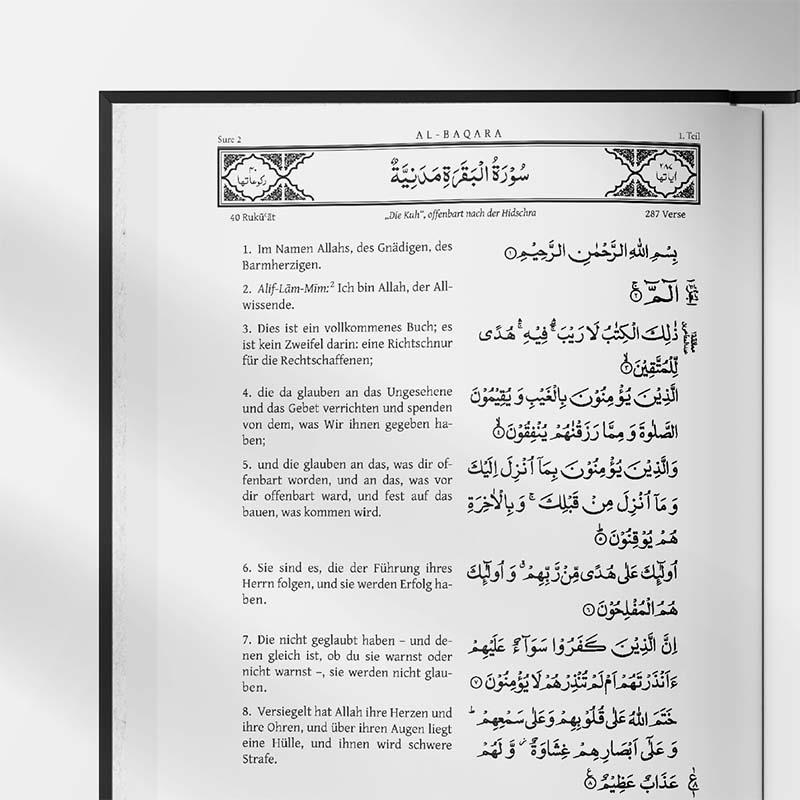 Sure 2
AL-BAQARA
1. Teil
٤٠
رکوعاتها
سُوْرَةُ الْبَقَرَةِ مَدَنِيَّةٌ
٢٨٧
اٰیاتها
40 Rukūʿāt
„Die Kuh“, offenbart nach der Hidschra
287 Verse
1. Im Namen Allahs, des Gnädigen, des
Barmherzigen.
2. Alif-Lām-Mīm:2 Ich bin Allah, der All-
wissende.
3. Dies ist ein vollkommenes Buch; es
ist kein Zweifel darin: eine Richtschnur
für die Rechtschaffenen;
4. die da glauben an das Ungesehene
und das Gebet verrichten und spenden
von dem, was Wir ihnen gegeben ha-
ben;
5. und die glauben an das, was dir of-
fenbart worden, und an das, was vor
dir offenbart ward, und fest auf das
bauen, was kommen wird.
6. Sie sind es, die der Führung ihres
Herrn folgen, und sie werden Erfolg ha-
ben.
7. Die nicht geglaubt haben – und de-
nen gleich ist, ob du sie warnst oder
nicht warnst –, sie werden nicht glau-
ben.
8. Versiegelt hat Allah ihre Herzen und
ihre Ohren, und über ihren Augen liegt
eine Hülle, und ihnen wird schwere
Strafe.
بِسْمِ اللّٰهِ الرَّحْمٰنِ الرَّحِيْمِ ۝١
الٓمّٓ ۚ۝٢
ذٰلِكَ الْكِتٰبُ لَا رَيْبَ ۛۚ فِيْهِ ۛۚ هُدًى
لِّلْمُتَّقِيْنَ ۙ۝٣
الَّذِيْنَ يُؤْمِنُوْنَ بِالْغَيْبِ وَ يُقِيْمُوْنَ
الصَّلٰوةَ وَ مِمَّا رَزَقْنٰهُمْ يُنْفِقُوْنَ ۙ۝٤
وَالَّذِيْنَ يُؤْمِنُوْنَ بِمَاۤ اُنْزِلَ اِلَيْكَ
وَ مَاۤ اُنْزِلَ مِنْ قَبْلِكَ ۚ وَ بِالْاٰخِرَةِ
هُمْ يُوْقِنُوْنَ ۝٥
اُولٰٓئِكَ عَلٰى هُدًى مِّنْ رَّبِّهِمْ ۙ وَ اُولٰٓئِكَ
هُمُ الْمُفْلِحُوْنَ ۝٦
اِنَّ الَّذِيْنَ كَفَرُوْا سَوَآءٌ عَلَيْهِمْ
ءَاَنْذَرْتَهُمْ اَمْ لَمْ تُنْذِرْهُمْ لَا يُؤْمِنُوْنَ ۝٧
خَتَمَ اللّٰهُ عَلٰى قُلُوْبِهِمْ وَ عَلٰى سَمْعِهِمْ ؕ
وَ عَلٰۤى اَبْصَارِهِمْ غِشَاوَةٌ ۫ وَّ لَهُمْ
عَذَابٌ عَظِيْمٌ ۝٨